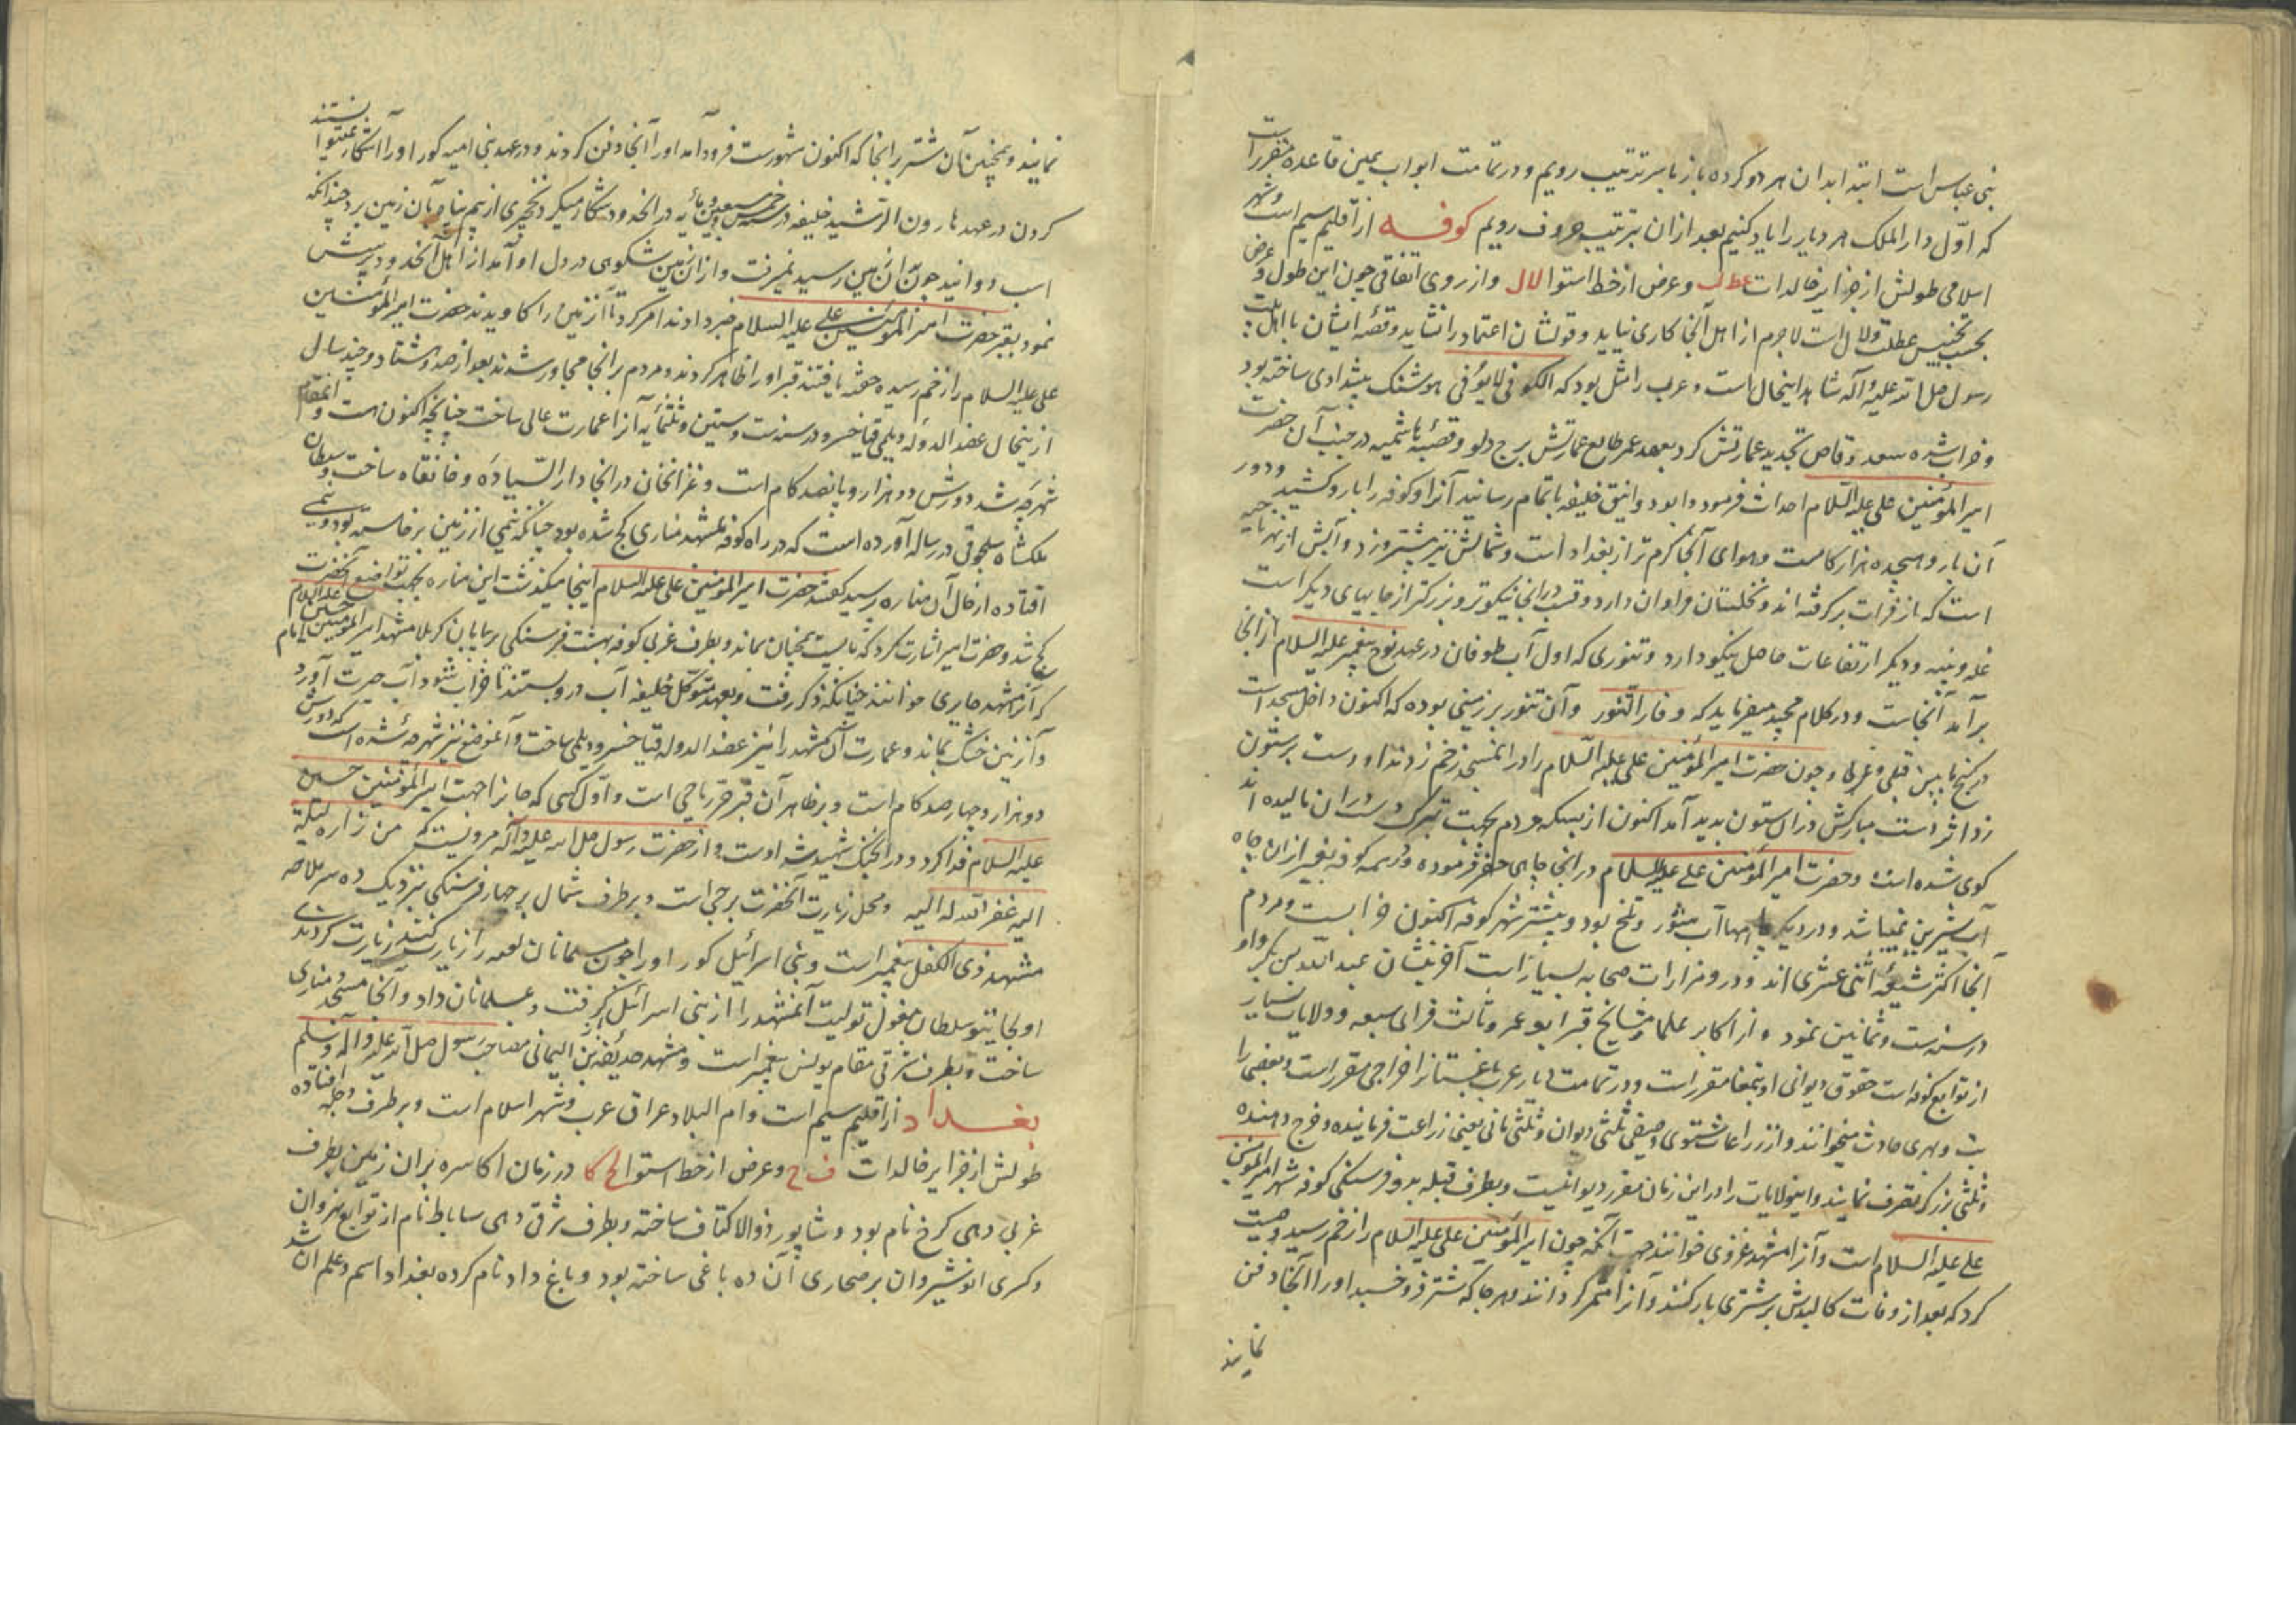 بنی عباس است ابتدا بدان هر دو کرده باز با سر ترتیب رویم و در تمامت ابواب همین قاعده مقرر است
که اوّل دار الملک هر دیار را یاد کنیم بعد ازان بترتیب حروف رویم کوفه از اقلیم سیم است و شهر
اسلامی طولش از جزایر خالدات عط ل و عرض از خط استوا لا ل و از روی اتفاقی چون این طول و عرض
بحسب تجنیس عطلت و لال است لاجرم از اهل آنجا کاری نیاید و قولشان اعتماد را نشاید و قصه ایشان با اهل بیت
رسول صل الله علیه و آله شاهد اینحال است و عرب را مثل بود که الکوفی لا یوفی هوشنگ پیشدادی ساخته بود
و خراب شده سعد وقاص تجدید عمارتش کرد بعهد عمر طالع عمارتش برج دلو و قصبه هاشمیه در جنب آن حضرت
امیر المؤمنین علی علیه السّلام احداث فرموده بود وانیق خلیفه باتمام رسانید آنرا و کوفه را بارو کشید و دور
آن بارو هیجده هزار کامست و هوای آنجا گرم تر از بغداد است و شمالش نیز بیشتر وزد و آبش از نهر ناجیه
است که از فرات برگرفته اند و نخلستان فراوان دارد و قسب در انجا نیکوتر و بزرگتر از جایهای دیگر است
غله و پنبه و دیگر ارتفاعات حاصل نیکو دارد و تنوری که اول آب طوفان در عهد نوح پیغمبر علیه السلام از انجا
بر آمد آنجاست و در کلام مجید میفرماید که و فار التّنور و آن تنور بر زمینی بوده که اکنون داخل مسجد است
در کنج ما بین قبلی و غربی و چون حضرت امیر المؤمنین علی علیه السّلام را در ان مسجد زخم زدند او دست بر ستون
زد اثر دست مبارکش در ان ستون بدید آمد اکنون از بسکه مردم بجهت تبرک دست در ان مالیده اند
کوی شده است و حضرت امیر المؤمنین علی علیه السلام در انجا چاهی حفر فرموده و در همه کوفه بغیر از ان چاه
آب شیرین نمیباشد و در دیگر چاهها آب شور و تلخ بود و بیشتر شهر کوفه اکنون خرابست و مردم
آنجا اکثر شیعه اثنی عشری اند و در و مزارات صحابه بسیار است آخریشان عبد الله بن بکر و او
در سنه ست و ثمانین نمود و از اکابر علما و مشایخ قبر ابو عمرو ثالث قرای سبعه و ولایات بسیار
از توابع کوفه است حقوق دیوانی او بتمغا مقرر است و در تمامت دیار عرب باغستانرا خراجی مقرر است و بعضی را
و بهری حادث میخوانند و از زراعات شتوی و صیفی ثلثی دیوان و ثلثی بانی یعنی زراعت فرماینده و خرج دهنده
و ثلثی بزرگر تصرف نمایند و اینولایات را در این زمان مقرر دیوانیست و بطرف قبله بدو فرسنگی کوفه مشهد امیر المؤمنین
علی علیه السلام است و آنرا مشهد غروی خوانند جهت آنکه چون امیر المؤمنین علی علیه السلام را زخم رسید وصیت
کرد که بعد از وفات کالبدش بر شتری بار کنند و آنرا متحر گردانند و هر جا که شتر فرو خسبد او را آنجا دفن
نمایند
نمایند و همچنین آن شتر بر انجا که اکنون شهورست فرود آمد او را آنجا دفن کردند و در عهد بنی امیه گور او را آشکار نمیتوانستند
کردن در عهد هارون الرشید خلیفه در سنه خمس و سبعین و مأیه در انحدود شکار میکرد نخچیری از بیم پناه بآن زمین برد چندانکه
اسب دوانید چون بان زمین رسید نمیرفت و از ان زمین شکوهی در دل او آمد از اهل انحدود پرسش
نمود بقبر حضرت امیر المؤمنین علی علیه السلام خبر دادند امر کرد تا آنزمین را کاویدند حضرت امیر المؤمنین
علی علیه السلام را زخم رسیده خفته یافتند قبر او را ظاهر کردند و مردم بر انجا مجاور شدند بعد از صد و هشتاد و چند سال
از ینحال عضد الدوله دیلمی فنا خسرو در سنه ست و ستین و ثلثمأیه آنرا عمارت عالی ساخت چنانچه اکنون هست و انمقام
شهرچه شد دورش دو هزار و پانصد کام است و غزانخان در انجا دار السّیاده و خانقاه ساخت و سلطان
ملکشاه سلجوقی در رساله آورده است که در راه کوفه بمشهد مناری کج شده بود چنانکه نیمی از زمین برخاسته بود و نیمی
افتاده از حال آن مناره پرسید گفتند حضرت امیر المؤمنین علی علیه السلام اینجا میگذشت این مناره بجهت تواضع آنحضرت
کج شد و حضرت امیر اشارت کرد که بایست همچنان بماند و بطرف غربی کوفه بهشت فرسنگی بر بیابان کربلا مشهد امیر المؤمنین امام حسین علیه السلام
که آنرا مشهد حایری خوانند چنانکه ذکر رفت و بعهد متوکّل خلیفه آب در و بستند تا خراب شود آب حیرت آورد
و آنزمین خشک بماند و عمارت آن مشهد را نیز عضد الدوله فنا خسرو دیلمی ساخت و آنموضع نیز شهرچه شده است که دورش
دو هزار و چهار صد کام است و بر ظاهر آن قبر حر ریاحی است و اوّل کسی که جانرا جهت امیر المؤمنین حسین
علیه السلام فدا کرد و در انجنگ شهید شد اوست و از حضرت رسول صل الله علیه و آله مرویست که من زاره لیلة
الیه غفر الله له الیه و محل زیارت آنحضرت برجی است و بر طرف شمال بر چهار فرسنگی بنزدیک ده سر ملاحه
مشهد ذی الکفل پیغمبر است و بنی اسرائیل گور او را چون مسلمانان کعبه را زیارت کنند زیارت کردندی
اولجایتو سلطان مغول تولیت آنمشهد را از بنی اسرائیل گرفت و بمسلمانان داد و آنجا مسجد و مناری
ساخت و بطرف شرقی مقام یونس پیغمبر است و مشهد حذیفه بن الیمانی مصاحب رسول صل الله علیه و آله و سلم
بغداد از اقلیم سیم است و ام البلاد عراق عرب و شهر اسلام است و بر طرف دجله افتاده
طولش از جزایر خالدات ف ح و عرض از خط استوا لح کا در زمان اکاسره بران زمین بطرف
غربی دهی کرخ نام بود و شاپور ذو الاکتاف ساخته و بطرف شرقی دهی ساباط نام از توابع نهروان
و کسری انوشیروان بر صحاری آن ده باغی ساخته بود و باغ داد نام کرده بغداد اسم و علم آن شد